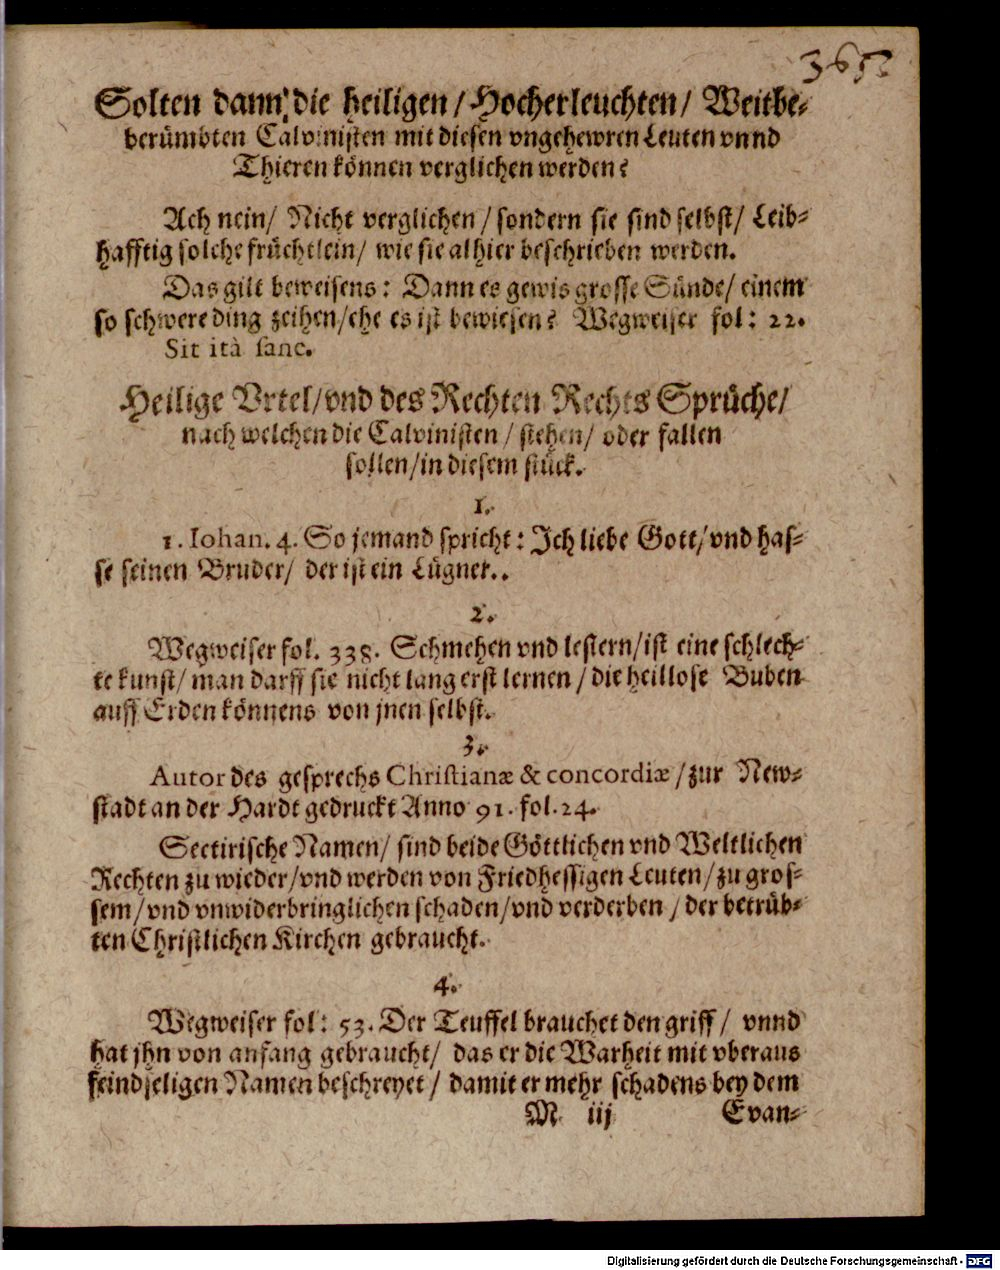 365
Solten dann die heiligen / Hocherleuchten / Weitbe-
berümbten Calvinisten mit diesen vngehewren Leuten vnnd
Thieren können verglichen werden?
Ach nein / Nicht verglichen / sondern sie sind selbst / Leib-
hafftig solche früchtlein / wie sie alhier beschrieben werden.
Das gilt beweisens: Dann es gewis grosse Sünde / einem
so schwere ding zeihen / ehe es ist bewiesen? Wegweiser fol: 22.
Sit ità sanc.
Heilige Vrtel / vnd des Rechten Rechts Sprüche /
nach welchen die Calvinisten / stehen / oder fallen
sollen / in diesem stück.
1.
1. Iohan. 4. So jemand spricht: Ich liebe Gott / vnd has-
se seinen Bruder / der ist ein Lügner..
2.
Wegweiser fol. 338. Schmehen vnd lestern / ist eine schlech-
te kunst / man darff sie nicht lang erst lernen / die heillose Buben
auff Erden könnens von jnen selbst.
3.
Autor des gesprechs Christianæ & concordiæ / zur New-
stadt an der Hardt gedruckt Anno 91. fol. 24.
Sectirische Namen / sind beide Göttlichen vnd Weltlichen
Rechten zu wieder / vnd werden von Friedhessigen Leuten / zu gros-
sem / vnd vnwiderbringlichen schaden / vnd verderben / der betrüb-
ten Christlichen Kirchen gebraucht.
4.
Wegweiser fol: 53. Der Teuffel brauchet den griff / vnnd
hat jhn von anfang gebraucht / das er die Warheit mit vberaus
feindseligen Namen beschreyet / damit er mehr schadens bey dem
M iij Evan-
Digitalisierung gefördert durch die Deutsche Forschungsgemeinschaft - DFG